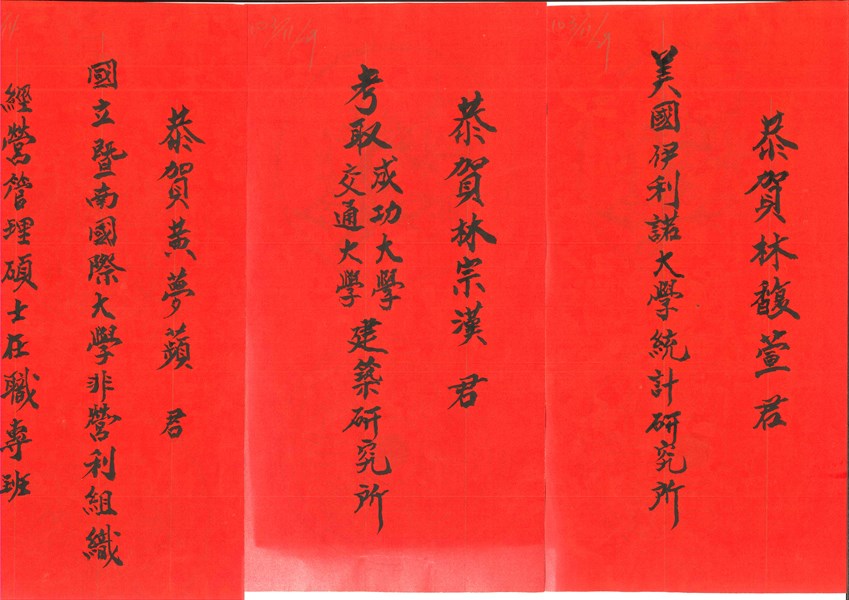 恭賀林馥萱君
美國伊利諾大學統計研究所
103/11/29
恭賀林宗漢 君
考取成功大學
交通大學
建築研究所
103/11/29
恭賀黃夢蘋 君
國立暨南國際大學非營利組織
經營管理碩士在職專班